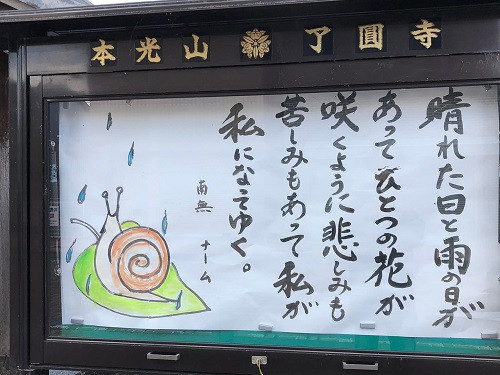 本光山 了圓寺
晴れた日と雨の日が
あってひとつの花が
咲くように悲しみも
苦しみもあって私が
私になってゆく。
南無 ナーム